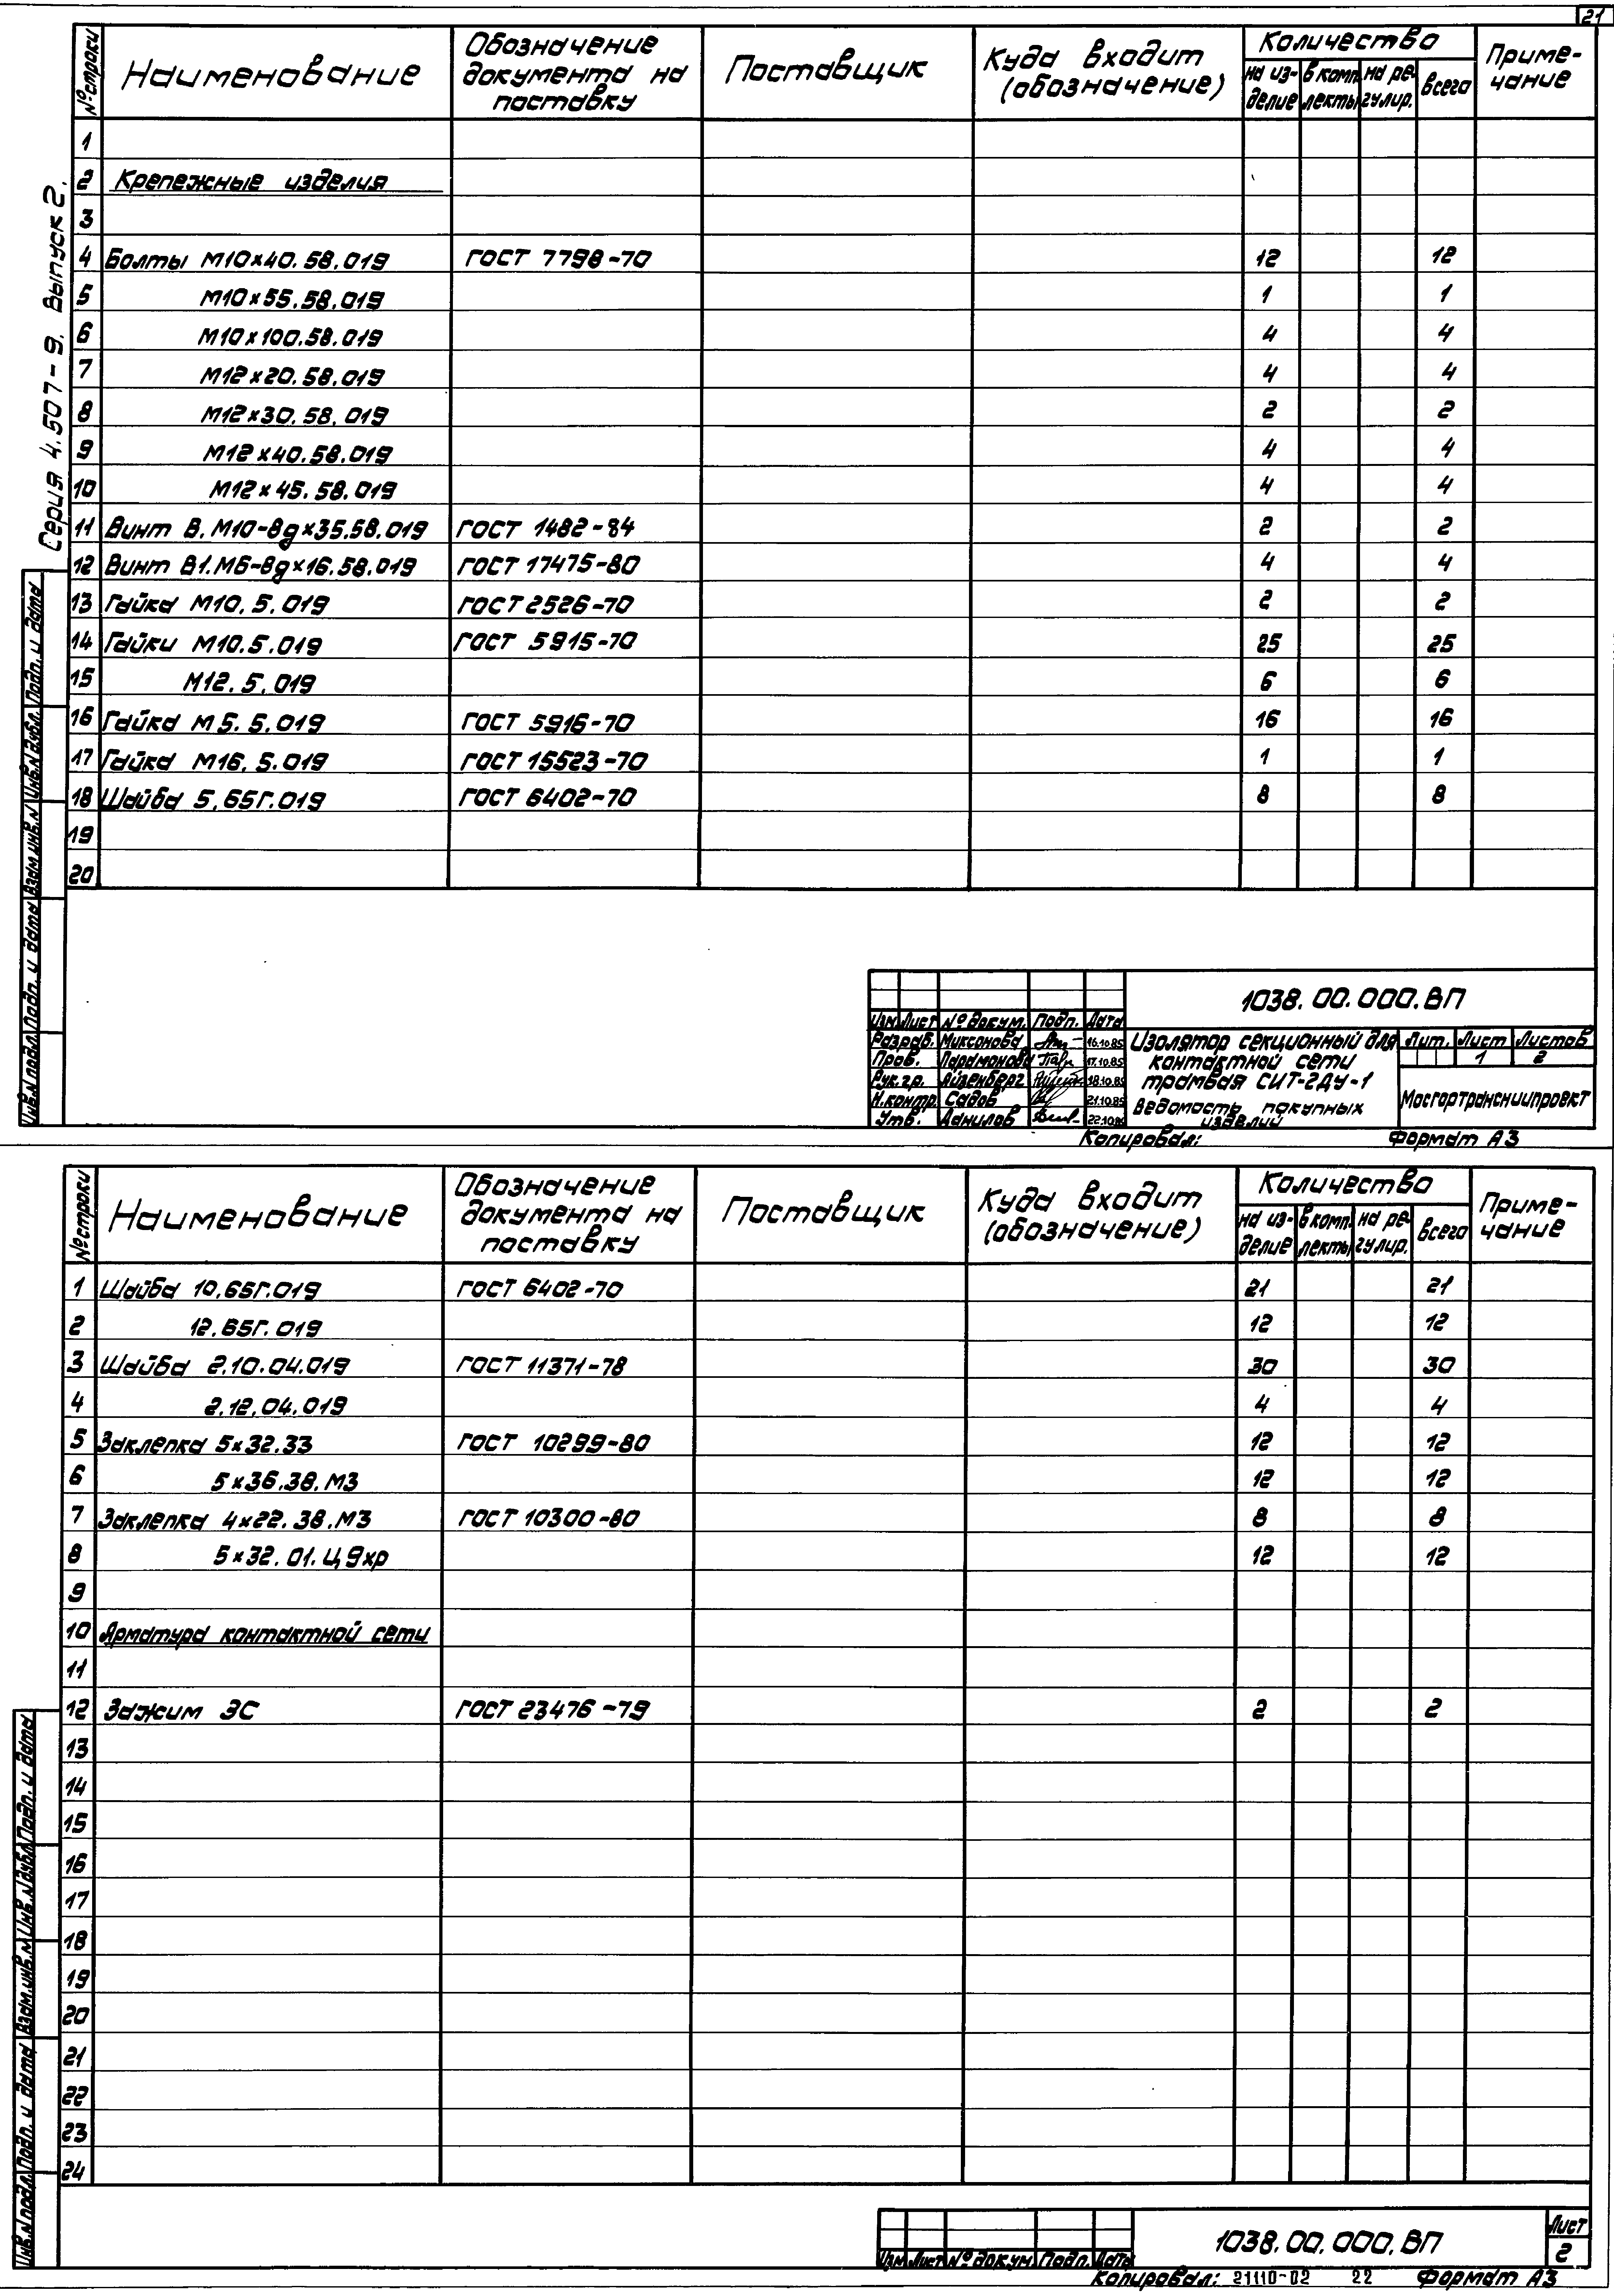 21
Серия 4.507-9. Выпуск 2.
№ строки | Наименование | Обозначение документа на поставку | Поставщик | Куда входит (обозначение) | Количество | Приме-чание
на из-делие | в комп-лекты | на ре-гулир. | всего
1
2 Крепежные изделия
3
4 Болты М10×40.58.019 ГОСТ 7798-70 12 12
5 М10×55.58.019 1 1
6 М10×100.58.019 4 4
7 М12×20.58.019 4 4
8 М12×30.58.019 2 2
9 М12×40.58.019 4 4
10 М12×45.58.019 4 4
11 Винт В.М10-8g×35.58.019 ГОСТ 1482-84 2 2
12 Винт В1.М6-8g×16.58.019 ГОСТ 17475-80 4 4
13 Гайка М10.5.019 ГОСТ 2526-70 2 2
14 Гайки М10.5.019 ГОСТ 5915-70 25 25
15 М12.5.019 6 6
16 Гайка М5.5.019 ГОСТ 5916-70 16 16
17 Гайка М16.5.019 ГОСТ 15523-70 1 1
18 Шайба 5.65Г.019 ГОСТ 6402-70 8 8
19
20
Инв.N подл. Подп. и дата Взам.инв.N Инв.N дубл. Подп. и дата
1038.00.000.ВП
Изм Лист № докум. Подп. Дата
Разраб. Миксонова 16.10.85
Пров. Парамонова 17.10.85
Рук.гр. Айзенберг 18.10.85
Н.контр. Садов 21.10.85
Утв. Данилов 22.10.85
Изолятор секционный для
контактной сети
трамвая СИТ-2ДУ-1
Ведомость покупных
изделий
Лит. Лист Листов
1 2
Мосгортрансниипроект
Копировал: Формат А3
№ строки | Наименование | Обозначение документа на поставку | Поставщик | Куда входит (обозначение) | Количество | Приме-чание
на из-делие | в комп-лекты | на ре-гулир. | всего
1 Шайба 10.65Г.019 ГОСТ 6402-70 21 21
2 12.65Г.019 12 12
3 Шайба 2.10.04.019 ГОСТ 11371-78 30 30
4 2.12.04.019 4 4
5 Заклепка 5×32.33 ГОСТ 10299-80 12 12
6 5×36.38.М3 12 12
7 Заклепка 4×22.38.М3 ГОСТ 10300-80 8 8
8 5×32.01.Ц9хр 12 12
9
10 Арматура контактной сети
11
12 Зажим ЗС ГОСТ 23476-79 2 2
13
14
15
16
17
18
19
20
21
22
23
24
Инв.N подл. Подп. и дата Взам.инв.N Инв.N дубл. Подп. и дата
Изм Лист № докум. Подп. Дата
1038.00.000.ВП
Лист
2
Копировал: 21110-02 22 Формат А3